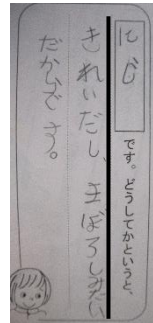 にじ
です。どうしてかというと、
きれいだし、まぼろしみたい
だからです。